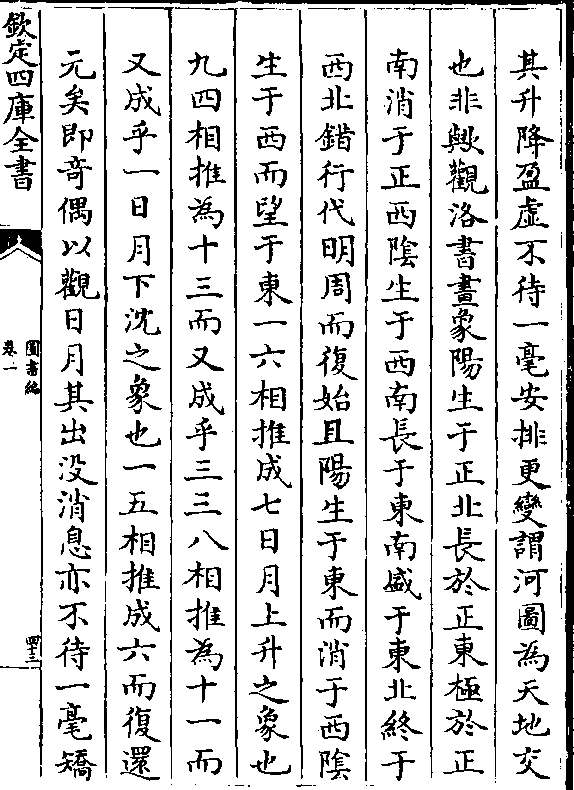 其升降盈虛不待一毫安排更變謂河圖為天地交
也非歟觀洛書畫象陽生于正北長於正東極於正
南消于正西陰生于西南長于東南盛于東北終于
西北錯行代明周而復始且陽生于東而消于西陰
生于西而望于東一六相推成七日月上升之象也
九四相推為十三而又成乎三三八相推為十一而
又成乎一日月下沈之象也一五相推成六而復還
元矣即奇偶以觀日月其出没消息亦不待一毫矯
欽定四庫全書
圖書編
卷一
四十三